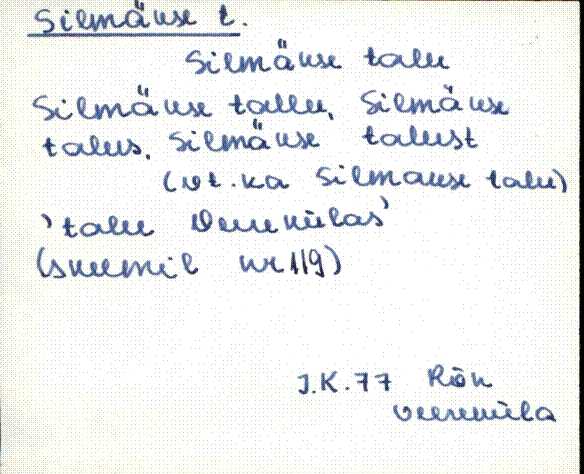 Silmäuse t.
Silmäuse talu
Silmäuse tallu, Silmäuse
talus, Silmäuse talust
(vt. ka Silmause talu)
'talu Veerekülas'
(skeemil nr 119)
J.K. 77 Rõn
Veereküla